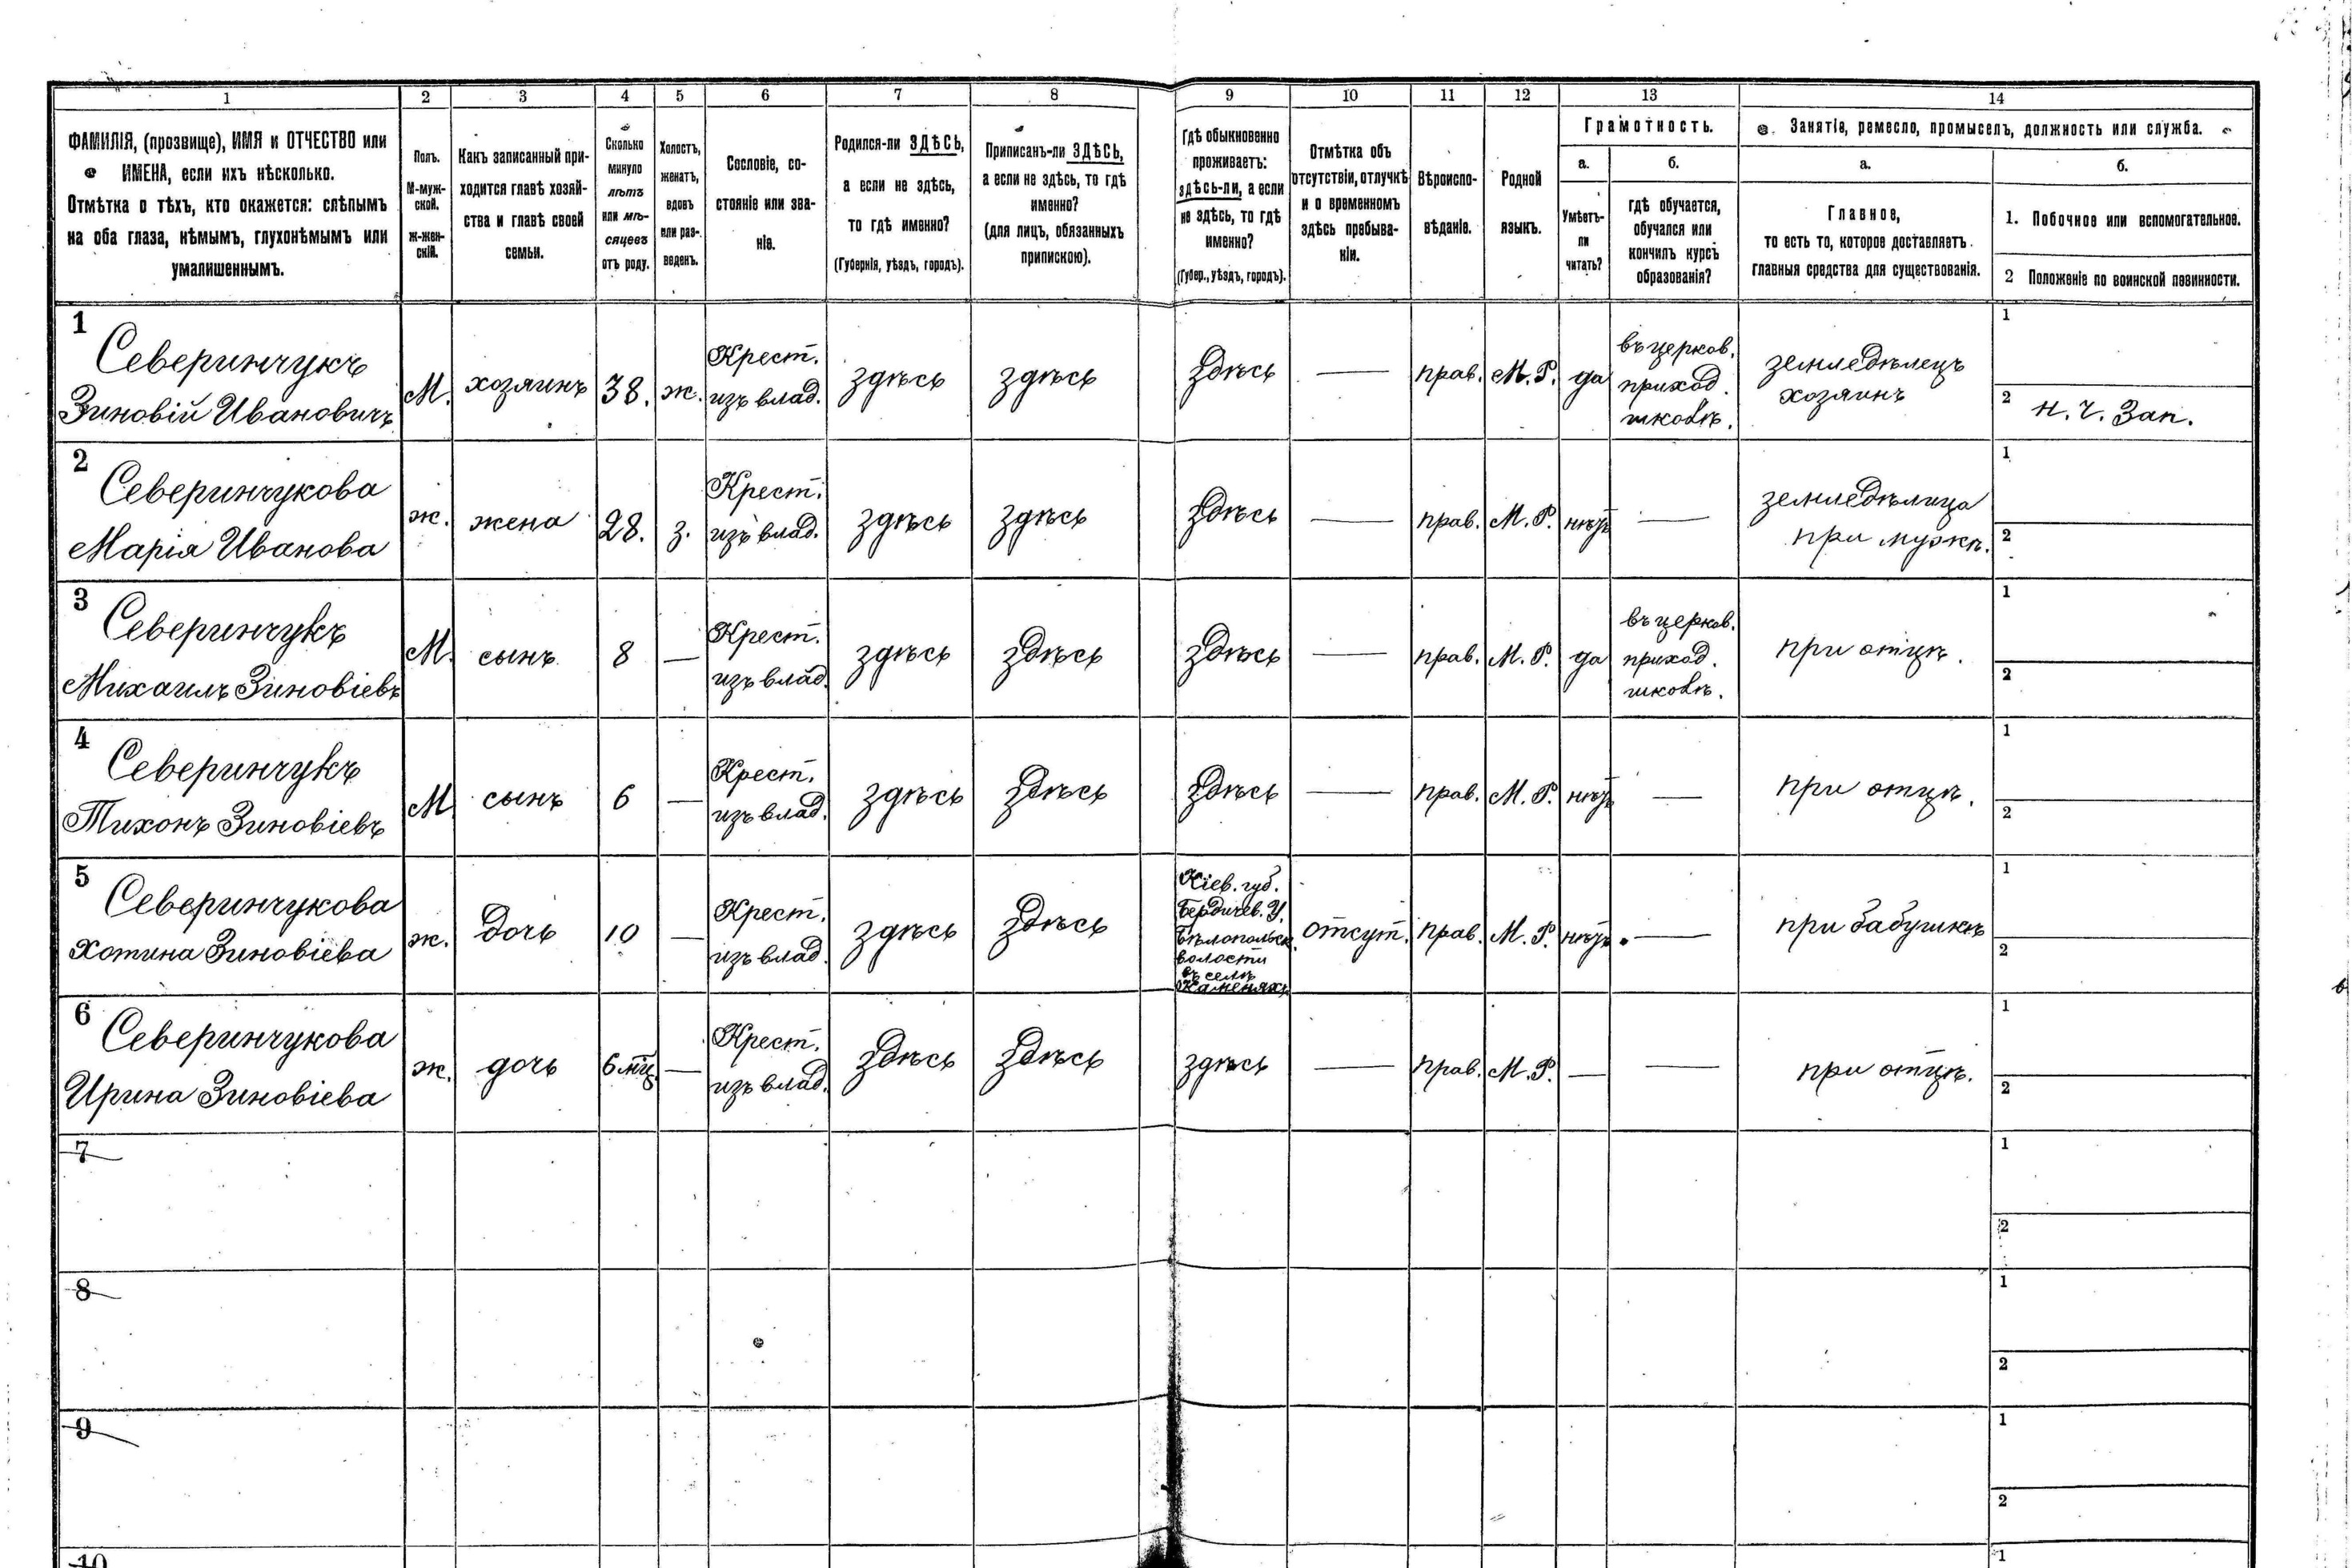 1 2 3 4 5 6 7 8 9 10 11 12 13 14
ФАМИЛІЯ, (прозвище), ИМЯ и ОТЧЕСТВО или
ИМЕНА, если ихъ нѣсколько.
Отмѣтка о тѣхъ, кто окажется: слѣпымъ
на оба глаза, нѣмымъ, глухонѣмымъ или
умалишеннымъ.
Полъ.
М-муж-
ской.
Ж-жен-
скій.
Какъ записанный при-
ходится главѣ хозяй-
ства и главѣ своей
семьи.
Сколько
минуло
лѣтъ
или мѣ-
сяцевъ
отъ роду.
Холостъ,
женатъ,
вдовъ
или раз-
веденъ.
Сословіе, со-
стояніе или зва-
ніе.
Родился-ли ЗДѢСЬ,
а если не здѣсь,
то гдѣ именно?
(Губернія, уѣздъ, городъ).
Приписанъ-ли ЗДѢСЬ,
а если не здѣсь, то гдѣ
именно?
(для лицъ, обязанныхъ
припискою).
Гдѣ обыкновенно
проживаетъ:
здѣсь-ли, а если
не здѣсь, то гдѣ
именно?
(Губер., уѣздъ, городъ).
Отмѣтка объ
отсутствіи, отлучкѣ
и о временномъ
здѣсь пребыва-
ніи.
Вѣроиспо-
вѣданіе.
Родной
языкъ.
Грамотность.
а.
Умѣетъ-
ли
читать?
б.
гдѣ обучается,
обучался или
кончилъ курсъ
образованія?
Занятіе, ремесло, промыселъ, должность или служба.
а.
Главное,
то есть то, которое доставляетъ
главныя средства для существованія.
б.
1. Побочное или вспомогательное.
2 Положеніе по воинской повинности.
1
Северинчукъ
Зиновій Ивановичъ
М.
хозяинъ
38.
ж.
Крест.
изъ влад.
здѣсь
здѣсь
здѣсь
—
прав.
М. Р.
да
въ церков.
приход.
школѣ.
земледѣлецъ
хозяинъ
1
2 н. ч. Зап.
2
Северинчукова
Марія Иванова
ж.
жена
28.
з.
Крест.
изъ влад.
здѣсь
здѣсь
здѣсь
—
прав.
М. Р.
нѣтъ
—
земледѣлица
при мужѣ.
1
2
3
Северинчукъ
Михаилъ Зиновіевъ
М.
сынъ
8
—
Крест.
изъ влад.
здѣсь
здѣсь
здѣсь
—
прав.
М. Р.
да
въ церков.
приход.
школѣ.
при отцѣ.
1
2
4
Северинчукъ
Тихонъ Зиновіевъ
М
сынъ
6
—
Крест.
изъ влад.
здѣсь
здѣсь
здѣсь
—
прав.
М. Р.
нѣтъ
—
при отцѣ.
1
2
5
Северинчукова
Хотина Зиновіева
ж.
дочь
10
—
Крест.
изъ влад.
здѣсь
здѣсь
Кіев. губ.
Бердичев. У.
Бѣлопольск.
волости
въ селѣ
Каменяхъ
отсут.
прав.
М. Р.
нѣтъ.
—
при бабушкѣ
1
2
6
Северинчукова
Ирина Зиновіева
ж.
дочь
6 мц.
—
Крест.
изъ влад.
здѣсь
здѣсь
здѣсь
—
прав.
М. Р.
—
—
при отцѣ.
1
2
7
1
2
8
1
2
9
1
2
10
1